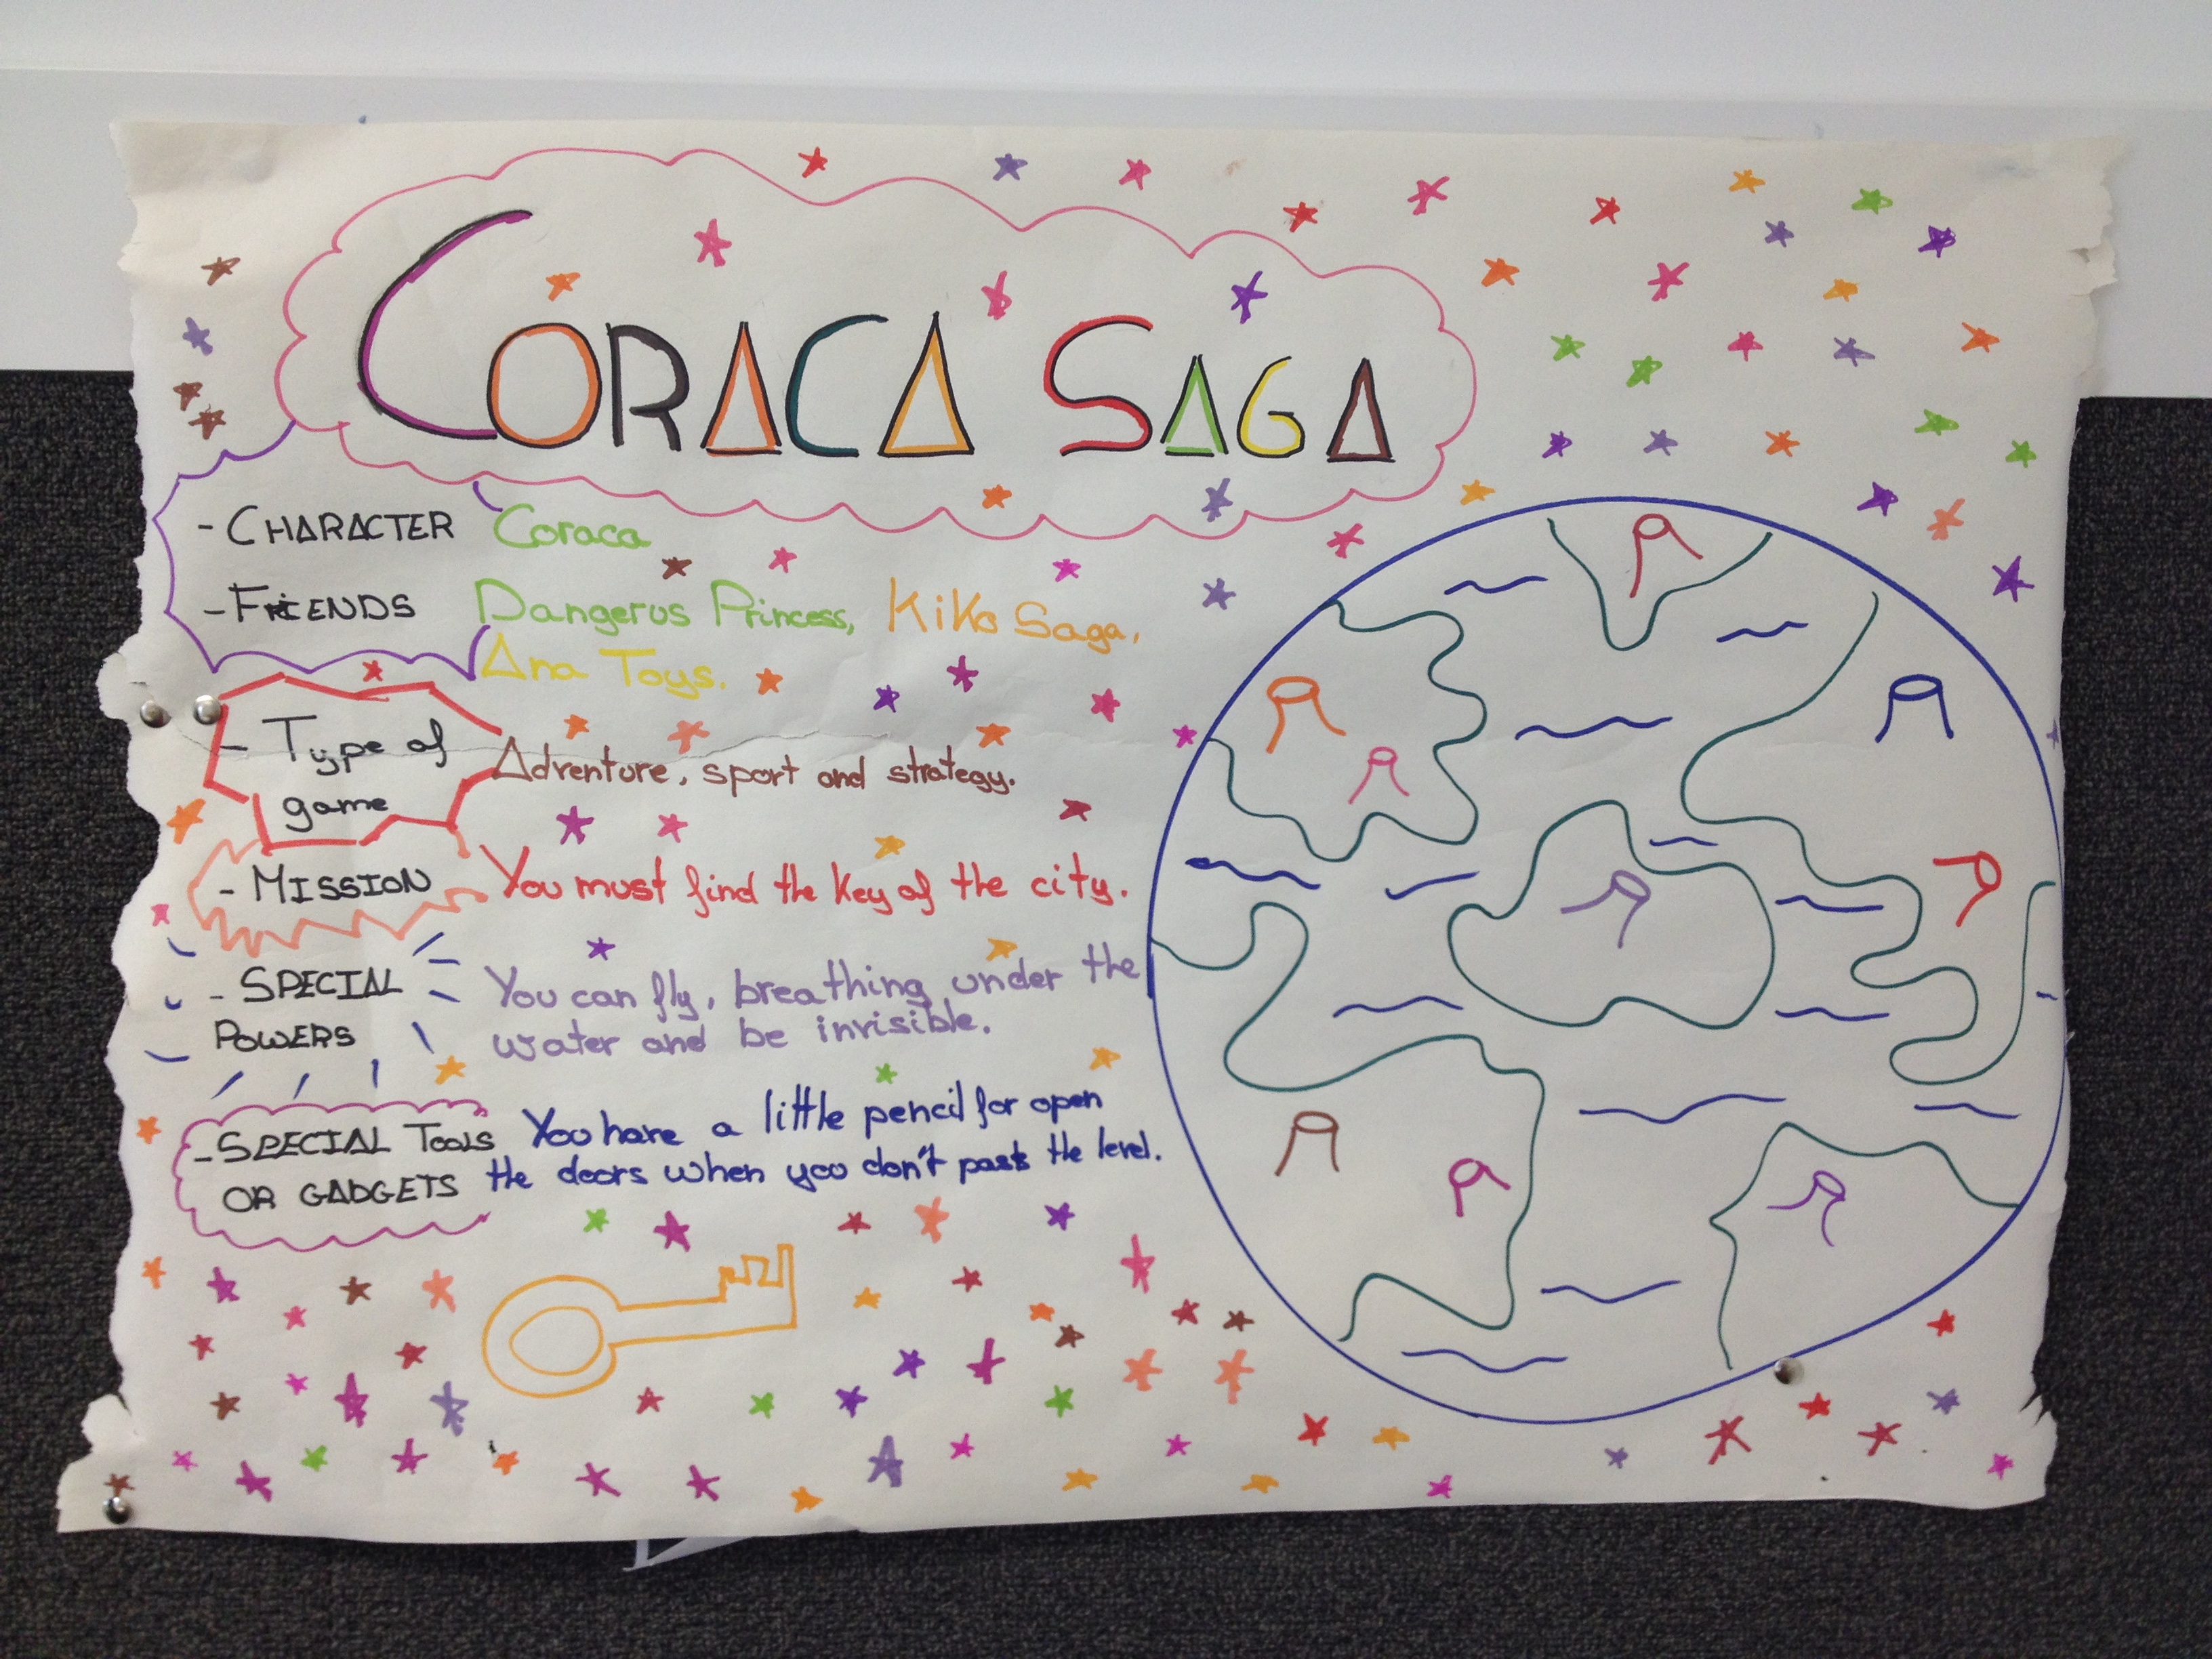 CORACA SAGA
- CHARACTER Coraca
- FRIENDS Dangerus Princess, Kiko Saga,
Ana Toys.
- Type of
game
Adventure, sport and strategy.
- MISSION You must find the key of the city.
- SPECIAL
POWERS
You can fly, breathing under the
water and be invisible.
- SPECIAL TOOLS
OR GADGETS
You have a little pencil for open
the doors when you don't pass the level.